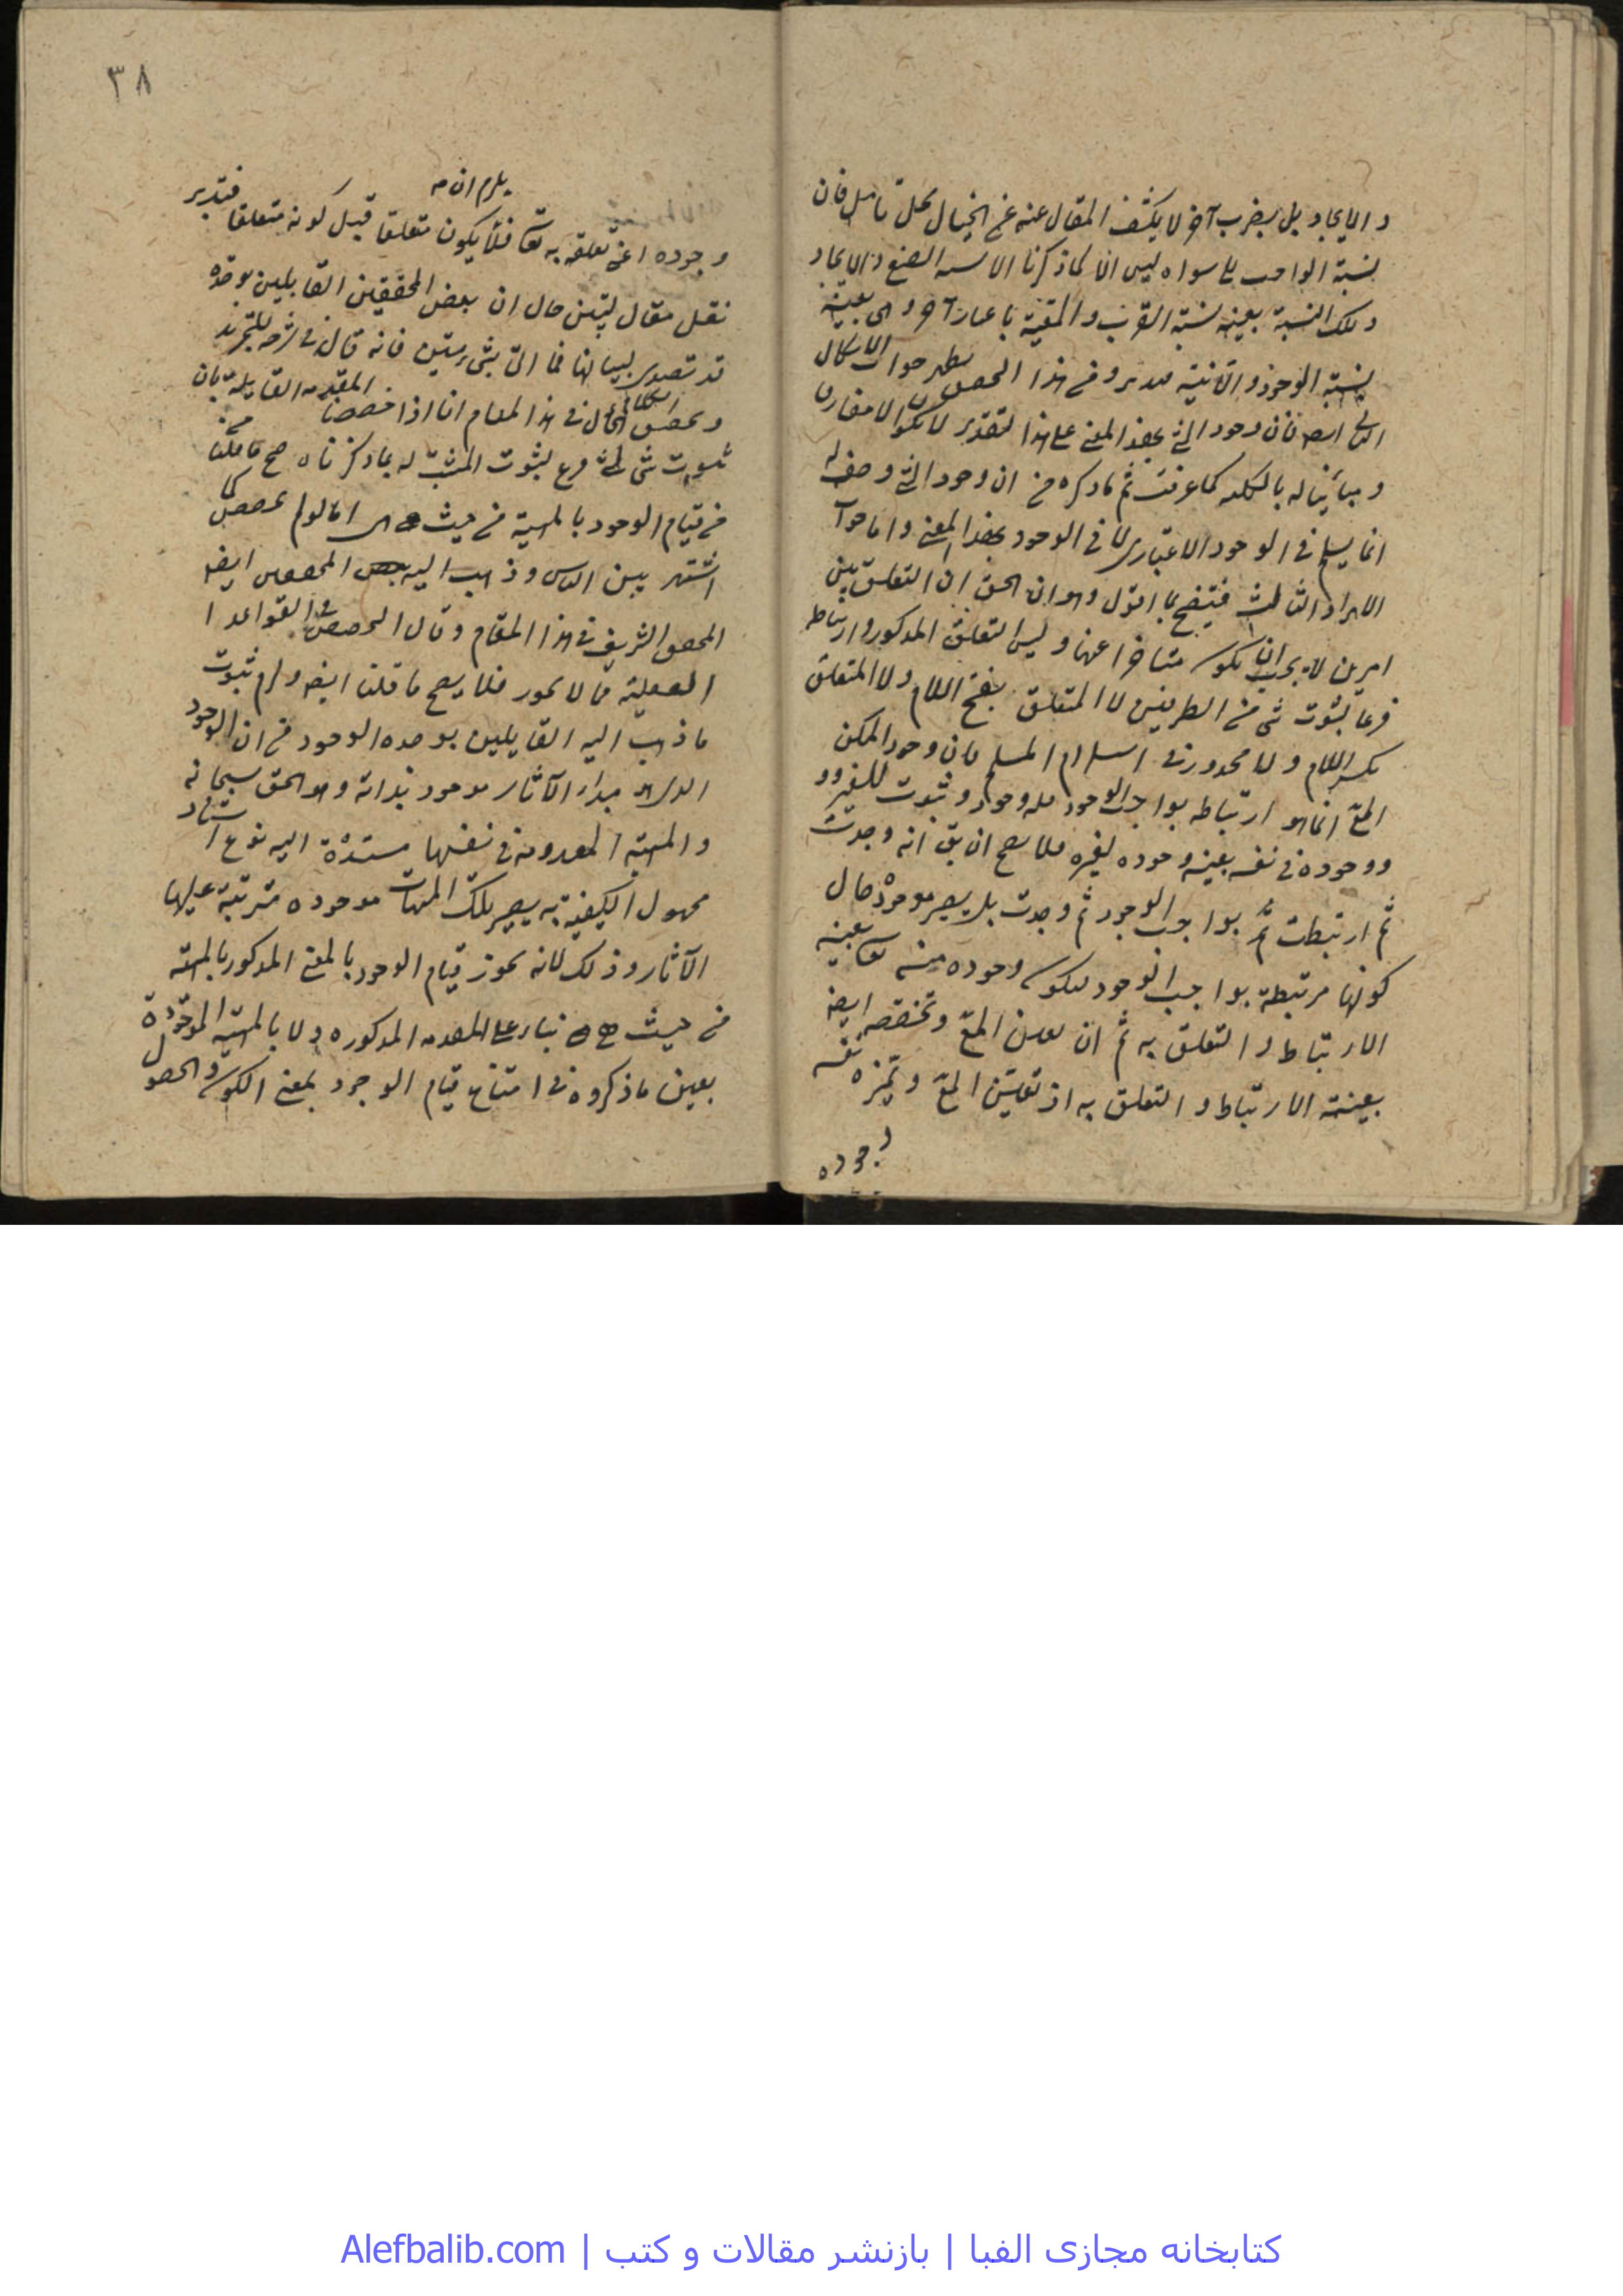 و الايجاد بل بضرب آخر لا يكشف المقال عنه غير الخيال محل تامل فان
نسبة الواجب الى سواه ليس الا كما ذكرنا الا نسبة الصنع و الايجاد
و تلك النسبة بعينه نسبة القرب و المعية باعتبار آخر و هى بعينه
نسبة الوجود و الانية فتدبر و من هذا التحقيق يظهر جواب الاشكال
الثانى ايضا فان وجود الشئ بهذا المعنى على هذا التقدير لا يكون الا مفارقا
و مباينا له بالكلية كما عرفت ثم ما ذكره من ان وجود الشئ وصف له
انما يسلم فى الوجود الاعتبارى لا فى الوجود بهذا المعنى و اما جواب
الايراد الثالث فيتضح بما اقول و هو ان الحق ان التعلق بين
امرين لا يجب ان يكون متاخرا عنها و ليس التعلق المذكور و ارتباط
فرعا لثبوت شئ من الطرفين لا المتعلق بفتح اللام و لا المتعلق
بكسر اللام و لا محذور فى استلزام المسلم فان وجود الممكن
المع انما هو ارتباطه بواجب الوجود فله وجود و ثبوت للغير و
و وجوده فى نفسه بعينه وجوده لغيره فلا يصح ان يق انه وجدت
ثم ارتبطت ثم بواجب الوجود ثم وجدت بل يصير موجودة حال
كونها مرتبطة بواجب الوجود ليكون وجوده منه تعا بعينه
الارتباط و التعلق به ثم ان تعين المع و تخصصه ايضا
بعينه الارتباط و التعلق به اذ تعين المع و تميزه نفس
وجوده
٣٨
يلزم ان
وجوده اعنى تعلقه به تعا فلا يكون متعلقا قبل كونه متعلقا فتدبر
نقل مقال لتبيين حال ان بعض المحققين القايلين بوحدة
قد تصدى لبيانها فما اتى بشئ متين فانه قال فى شرحه للتجريد
و تحقيق الكلام فى هذا المقام انا اذا خصصنا المقدمة القايلة بان
ثبوت شئ لشئ فرع لثبوت المثبت له بما ذكرناه صح ما قلنا
من قيام الوجود بالمهية من حيث هى هى اما لو لم تخصص كما
اشتهر بين الناس و ذهب اليه بعض المحققين ايضا
المحقق الشريف فى هذا المقام و قال التخصيص فى القواعد
العقلية مما لا يجوز فلا يصح ما قلنا ايضا و لزم ثبوت
ما ذهب اليه القايلين بوحدة الوجود من ان الوجود
الذى هو مبدأ الآثار موجود بذاته و هو الحق سبحانه
و المهية المعدومة فى نفسها مستندة اليه نوع استناد
مجهول الكيفية به يصير تلك المهيات موجودة مترتبة عليها
الآثار و ذلك لانه يجوز قيام الوجود بالمعنى المذكور بالمهية
من حيث هى هى بناء على المقدمة المذكورة و لا بالمهية الموجودة
بعين ما ذكروه فى امتناع قيام الوجود بمعنى الكون و الحصول
کتابخانه مجازی الفبا | بازنشر مقالات و کتب | Alefbalib.com